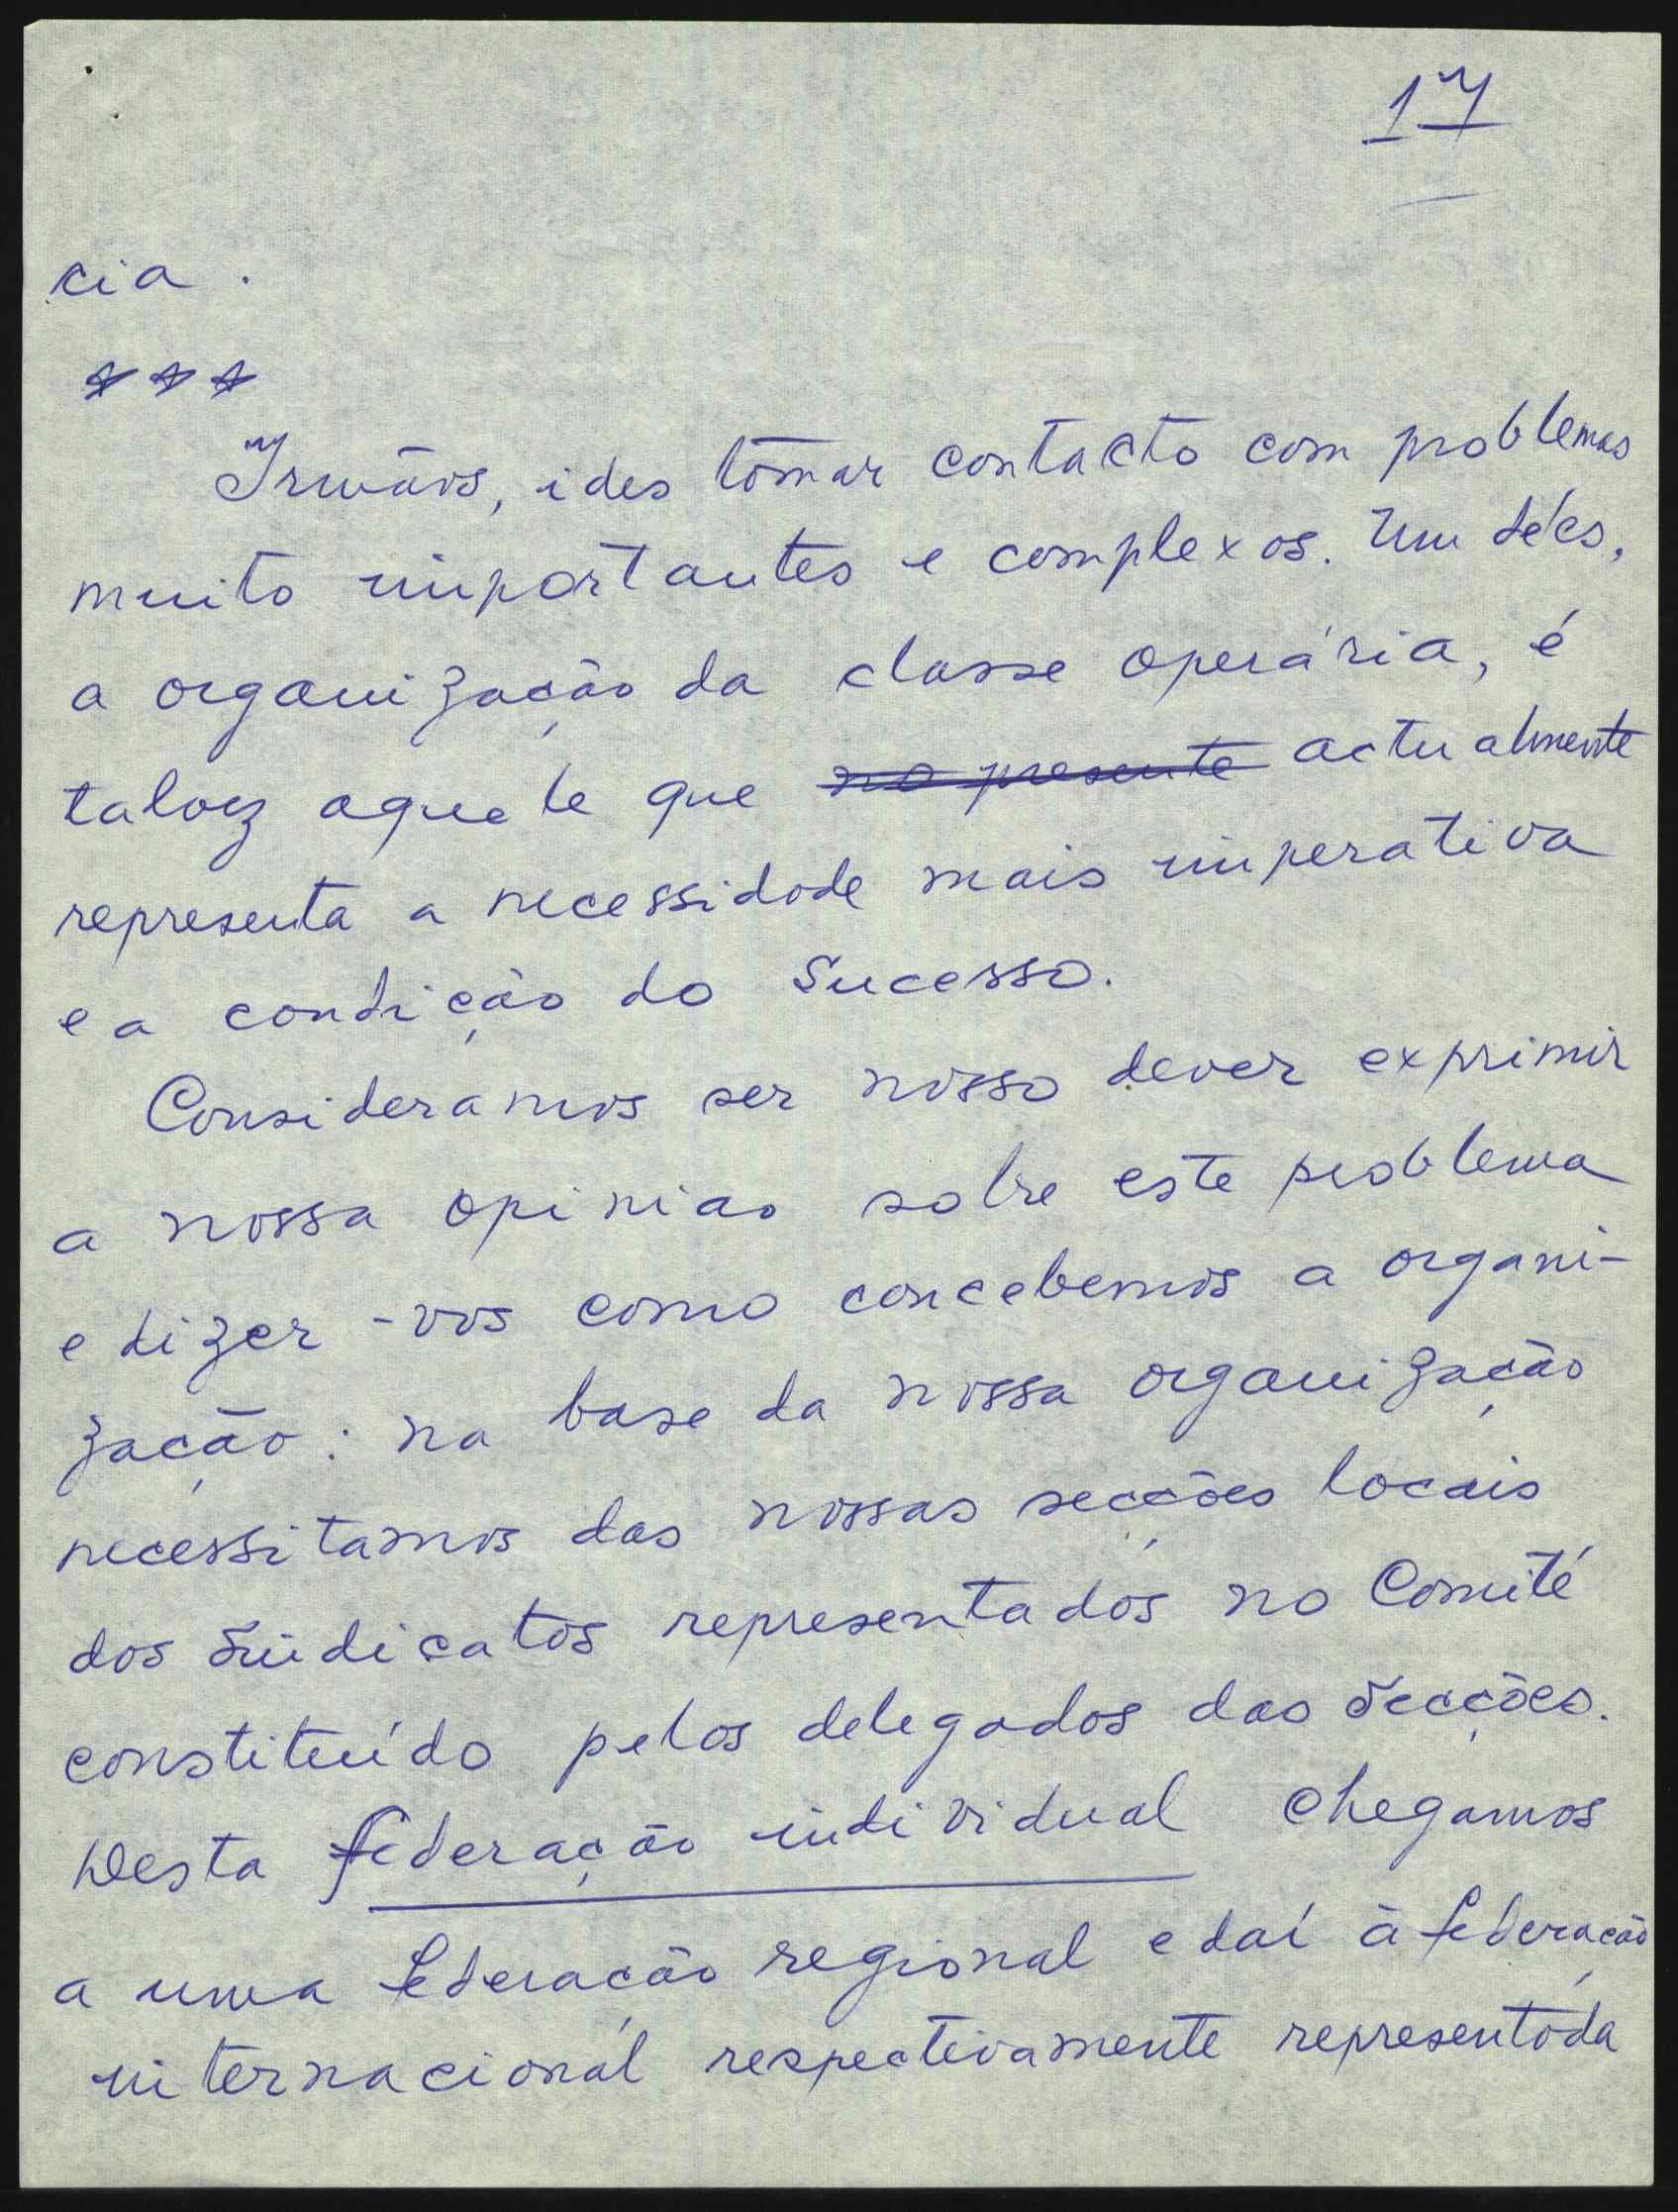 17
cia.
***
Irmãos, ides tomar contacto com problemas
muito importantes e complexos. Um dêles,
a organização da classe operária, é
talvez aquele que no presente actualmente
representa a necessidade mais imperativa
e a condição do Sucesso.
Consideramos ser nosso dever exprimir
a nossa opinião sobre este problema
e dizer-vos como concebemos a organi-
zação: na base da nossa organização
necessitamos das nossas secções locais
dos Sindicatos representados no Comité
constituído pelos delegados das Secções.
Desta federação individual chegamos
a uma federação regional e daí à federação
internacional respectivamente representada